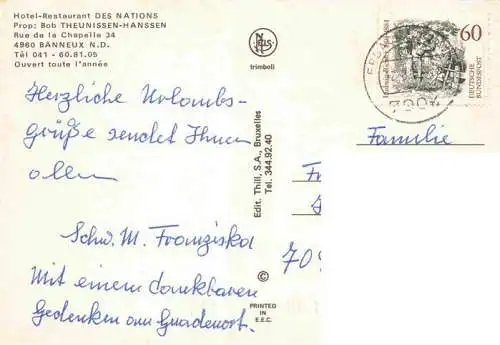 Hotel-Restaurant DES NATIONS
Prop: Bob THEUNISSEN-HANSSEN
Rue de la Chapelle 34
4960 BANNEUX N.D.
Tél 041 - 60.81.05
Ouvert toute l'année
NELS
trimboli
60
DEUTSCHE
BUNDESPOST
Herzliche Urlaubs-
grüße sendet Ihnen
allen
Schw. M. Franziska
Mit einem dankbaren
Gedenken am Gnadenort.
Edit. Thill, S.A., Bruxelles
Tel. 344.92.40
©
PRINTED
IN
E.E.C.
Familie
70